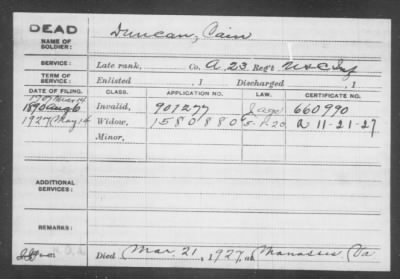 DEAD
NAME OF SOLDIER: Duncan, Cain
SERVICE: Late rank, Co. A, 23 Reg't U S C Inf
TERM OF SERVICE: Enlisted , 1 Discharged , 1
DATE OF FILING. CLASS. APPLICATION NO. LAW. CERTIFICATE NO.
1890 Aug 6 Invalid, 901277 660990
1927 May 14 Widow, 1580880 5-1-20 11-21-27
Minor,
ADDITIONAL SERVICES:
REMARKS:
Died Mar. 21, 1927, at Manassas Va